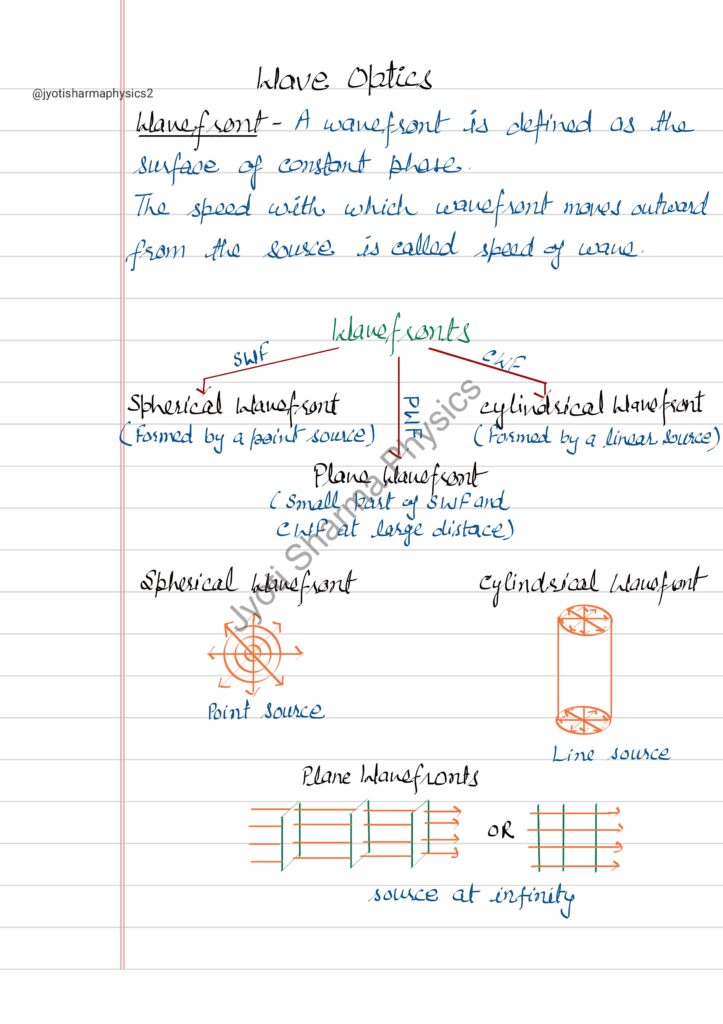 Wave Optics
@jyotisharmaphysics2
Wavefront - A wavefront is defined as the
surface of constant phase.
The speed with which wavefront moves outward
from the source is called speed of wave.
Wavefronts
SWF
CWF
PWF
Spherical Wavefront
(Formed by a point source)
Cylindrical Wavefront
(Formed by a linear source)
Plane Wavefront
(Small part of SWF and
CWF at large distace)
Spherical Wavefront
Cylindrical Wavefront
Point source
Line source
Plane Wavefronts
OR
source at infinity
Jyoti Sharma Physics